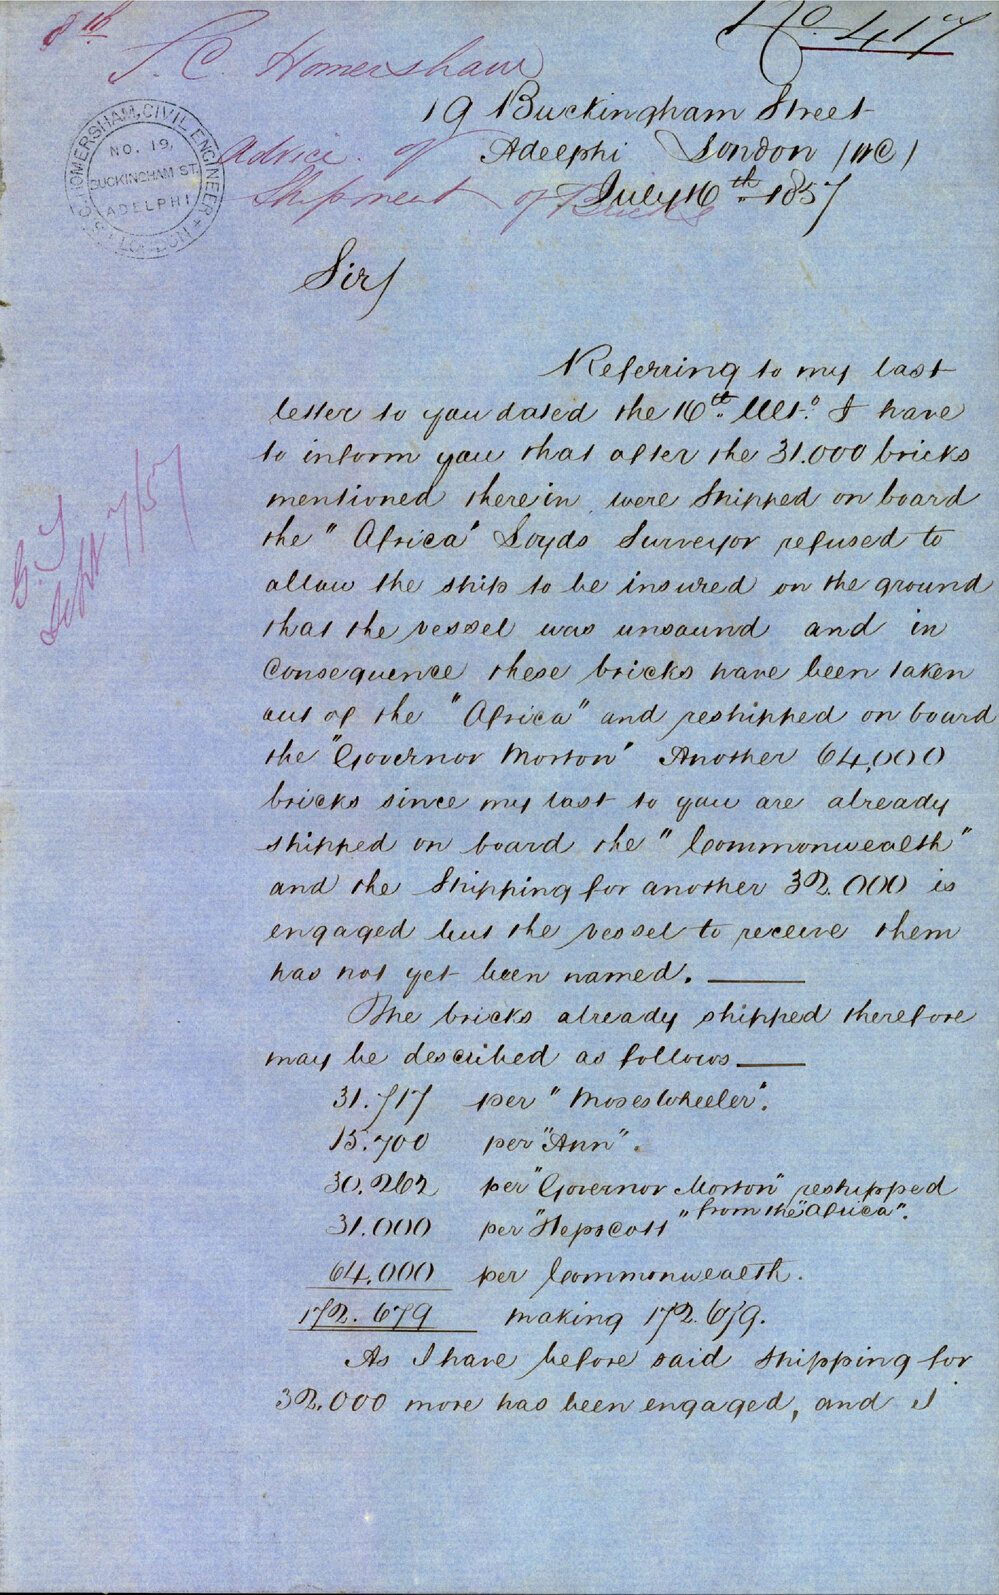 8th
No. 417
S. C. Homersham
19 Buckingham Street
Advice of
Adelphi London (WC)
Shipment of Bricks
July 16th 1857
S. C. HOMERSHAM, CIVIL ENGINEER
NO. 19,
BUCKINGHAM ST.
ADELPHI
LONDON
Sir/
Referring to my last
letter to you dated the 16th. Ulto. I have
to inform you that after the 31.000 bricks
mentioned therein were shipped on board
the "Africa" Loyds Surveyor refused to
allow the ship to be insured on the ground
that the vessel was unsound and in
consequence these bricks have been taken
out of the "Africa" and reshipped on board
the "Governor Morton" Another 64,000
bricks since my last to you are already
shipped on board the "Commonwealth"
and the shipping for another 32.000 is
engaged but the vessel to receive them
has not yet been named.
The bricks already shipped therefore
may be described as follows
31.717 per "Moses Wheeler".
15.700 per "Ann".
30.262 per "Governor Morton" reshipped
from the "Africa".
31.000 per "Hepscott"
64.000 per Commonwealth.
172.679 making 172.679.
As I have before said shipping for
32.000 more has been engaged, and I
Sept 7/57